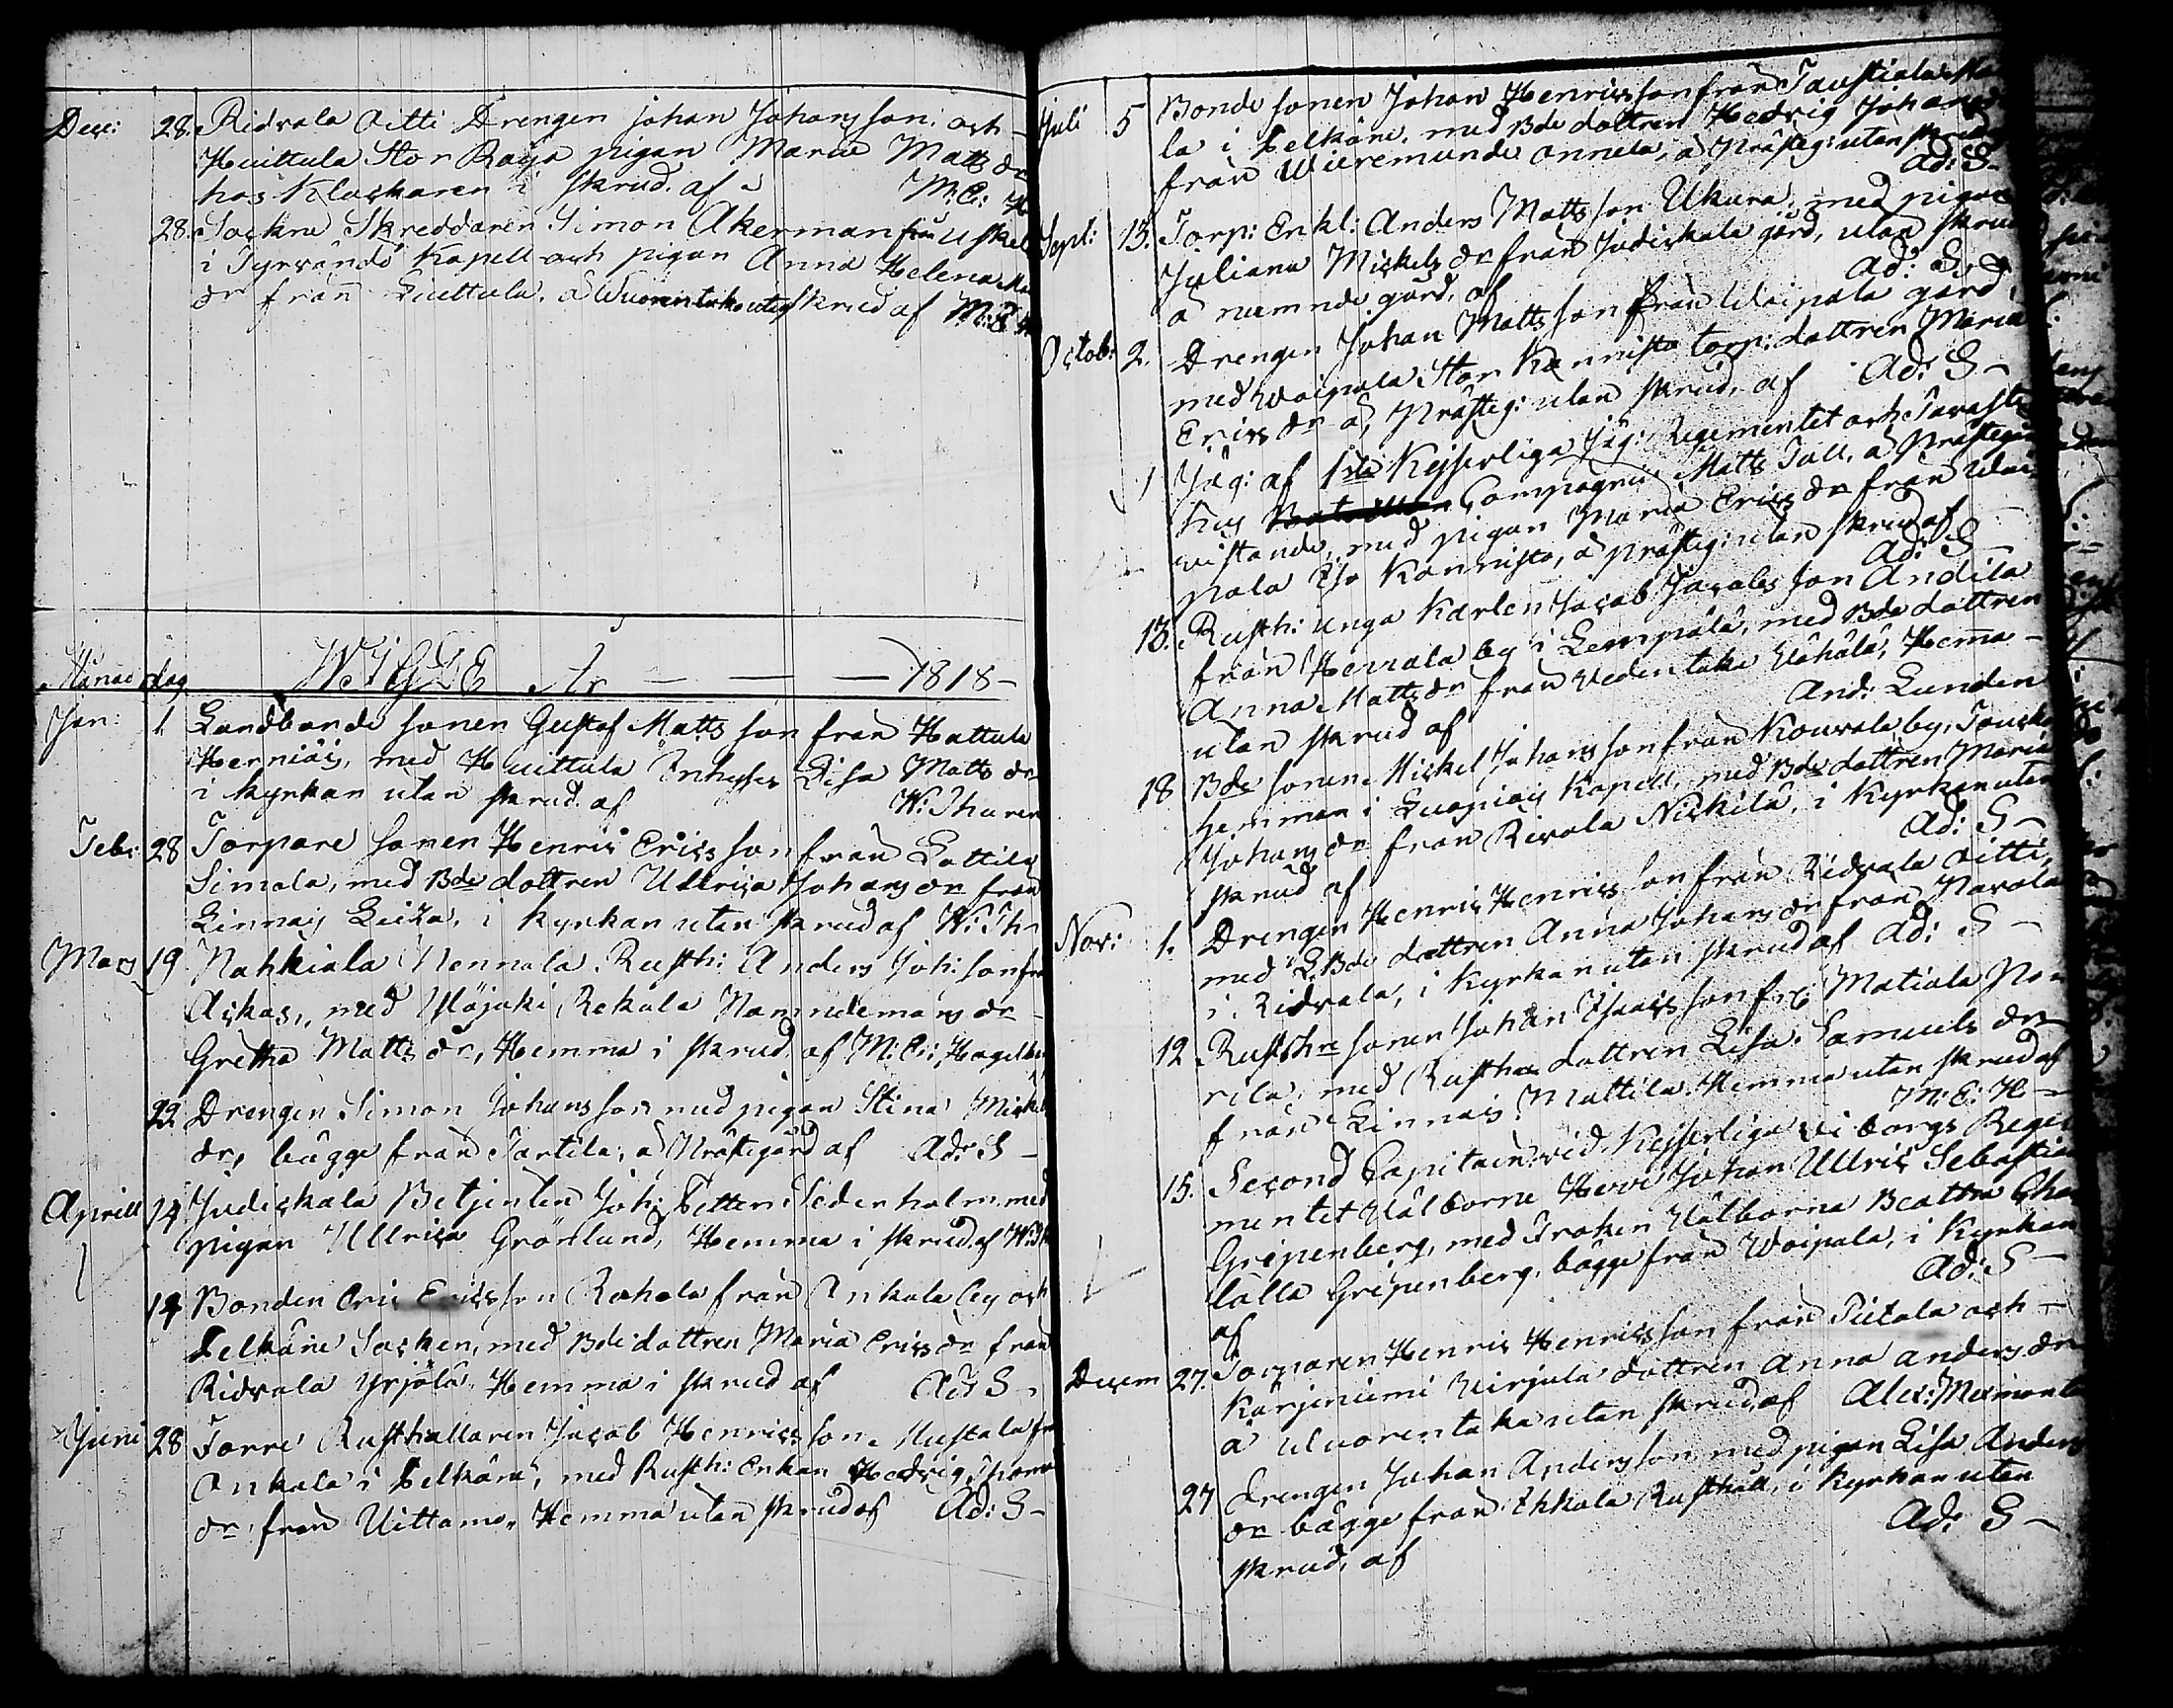 Dec: 28. Ridvala Aitti Drengen Johan Johansson och
Huittula Stor Raya pigan Maria Matts dr
hos Klockaren i skrud. af M: E: H
28. Sockne Skreddaren Simon Åkerman från Uskel
i Tyrvändö Kapell och pigan Anna Helena
dr från Luttula, å Wuorentaka utan skrud af M: E: H
Månad dag WIGDE År — — — 1818 —
Jan: 1. Landbonde sonen Gustaf Matts son från Hattula
Herniäis, med Huittula Inhyses Lisa Matts dr
i kyrkan utan skrud. af W: Thuren
Febr: 28 Torpare sonen Henric Erics son från Lottila
Simola, med Bde dottren Ullrica Johans dr från
Linnais Luika, i kyrkan utan skrud af W: Th
Mars 19 Nahkiala Nennala Rusth: Anders Joh: son från
Ackas, med Yläjoki Rekola Nämndemans dr
Gretha Matts dr, Hemma i skrud. af M: Er: Hagelberg
22. Drengen Simon Johans son med pigan Stina Mickels
dr, bägge från Tantila, å Prästegård af Ad: S —
Aprill 14 Judickala Betjenten Joh: Petter Söderholm med
pigan Ullrica Grönlund, Hemma i skrud. af W: Th
14 Bonden Eric Ericsson Rohola från Onkala by och
Pelkäne Socken, med Bde dottren Maria Erics dr från
Ridvala Yrjölä, Hemma i skrud af Ad: S —
Juni 28 Förre Rusthållaren Jacob Henrics son Mustala fr
Onkala i Pelkäne, med Rusth: Enkan Hedvig Thomas
dr från Uittamo, Hemma utan skrud af Ad: S —
Juli 5 Bonde sonen Johan Henricsson från Taustiala
la i Pelkäne, med Bde dottren Hedvig Johans
från Wieremunde Annula, å Prästeg: utan skrud
Ad: S —
Sept: 13. Torp: Enkl: Anders Matts son Ukura, med pigan
Juliana Mickels dr från Judickala gård, utan skrud
å nemnde gård, af Ad: S
Octob: 2. Drengen Johan Matts son från Woipala gård,
med Woipala Stor Kannisto torp: dottren Maria
Erics dr å, Prästeg: utan skrud, af Ad: S —
1 Jäg: af 1sta Kejserliga Jäg: Regementet och Tavaste
hus Compagnie Matts Tall, å Prästegård
vistande, med pigan Maria Erics dr från Woi
pala Iso Kannisto, å prästeg: utan skrud af
Ad: S
13. Rusth: unga Karlen Jacob Jacobs son Andila
från Herrala by i Lempälä, med Bde dottren
Anna Matts dr från Vedentaka Vähälä, Hemma
utan skrud af And: Lunden
18 Bde sonen Mickel Johans son från Kouvala by, Touska
hemman i Luopiois Kapell, med Bde dottren Maria
Johans dr från Rivala Nickilä, i kyrkan utan
skrud af Ad: S —
Nov: 1. Drengen Henric Henrics son från Ridvala Aitti,
med L: Bde dottren Anna Johans dr från Parola
i Ridvala, i kyrkan utan skrud af Ad: S —
12 Rusthre sonen Johan Isaics son från Matiala Pon
rila, med Rusthre dottren Lisa Samuels dr
från Linnais Mattila. Hemma utan skrud af
M: E: H —
15. Second Capitain vid Kejserliga Viborgs Rege
mentet Välborne Herr Johan Ullric Sebastian
Gripenberg, med Fröken Välborna Beatha Char
lotta Gripenberg, bägge från Woipala, i kyrkan
af Ad: S —
Decem 27. Torparen Henric Henricsson från Pietola och
Kärjeniemi Uirjula dottren Anna Anders dr
å Wuorentaka utan skrud af Alex: Mermonten
27 Drengen Johan Andersson, med pigan Lisa Anders
dr bägge från Ihkala Rusthåll, i kyrkan utan
skrud, af Ad: S —